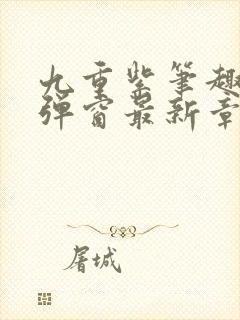 九重紫笔趣
弹窗最新章
屠城